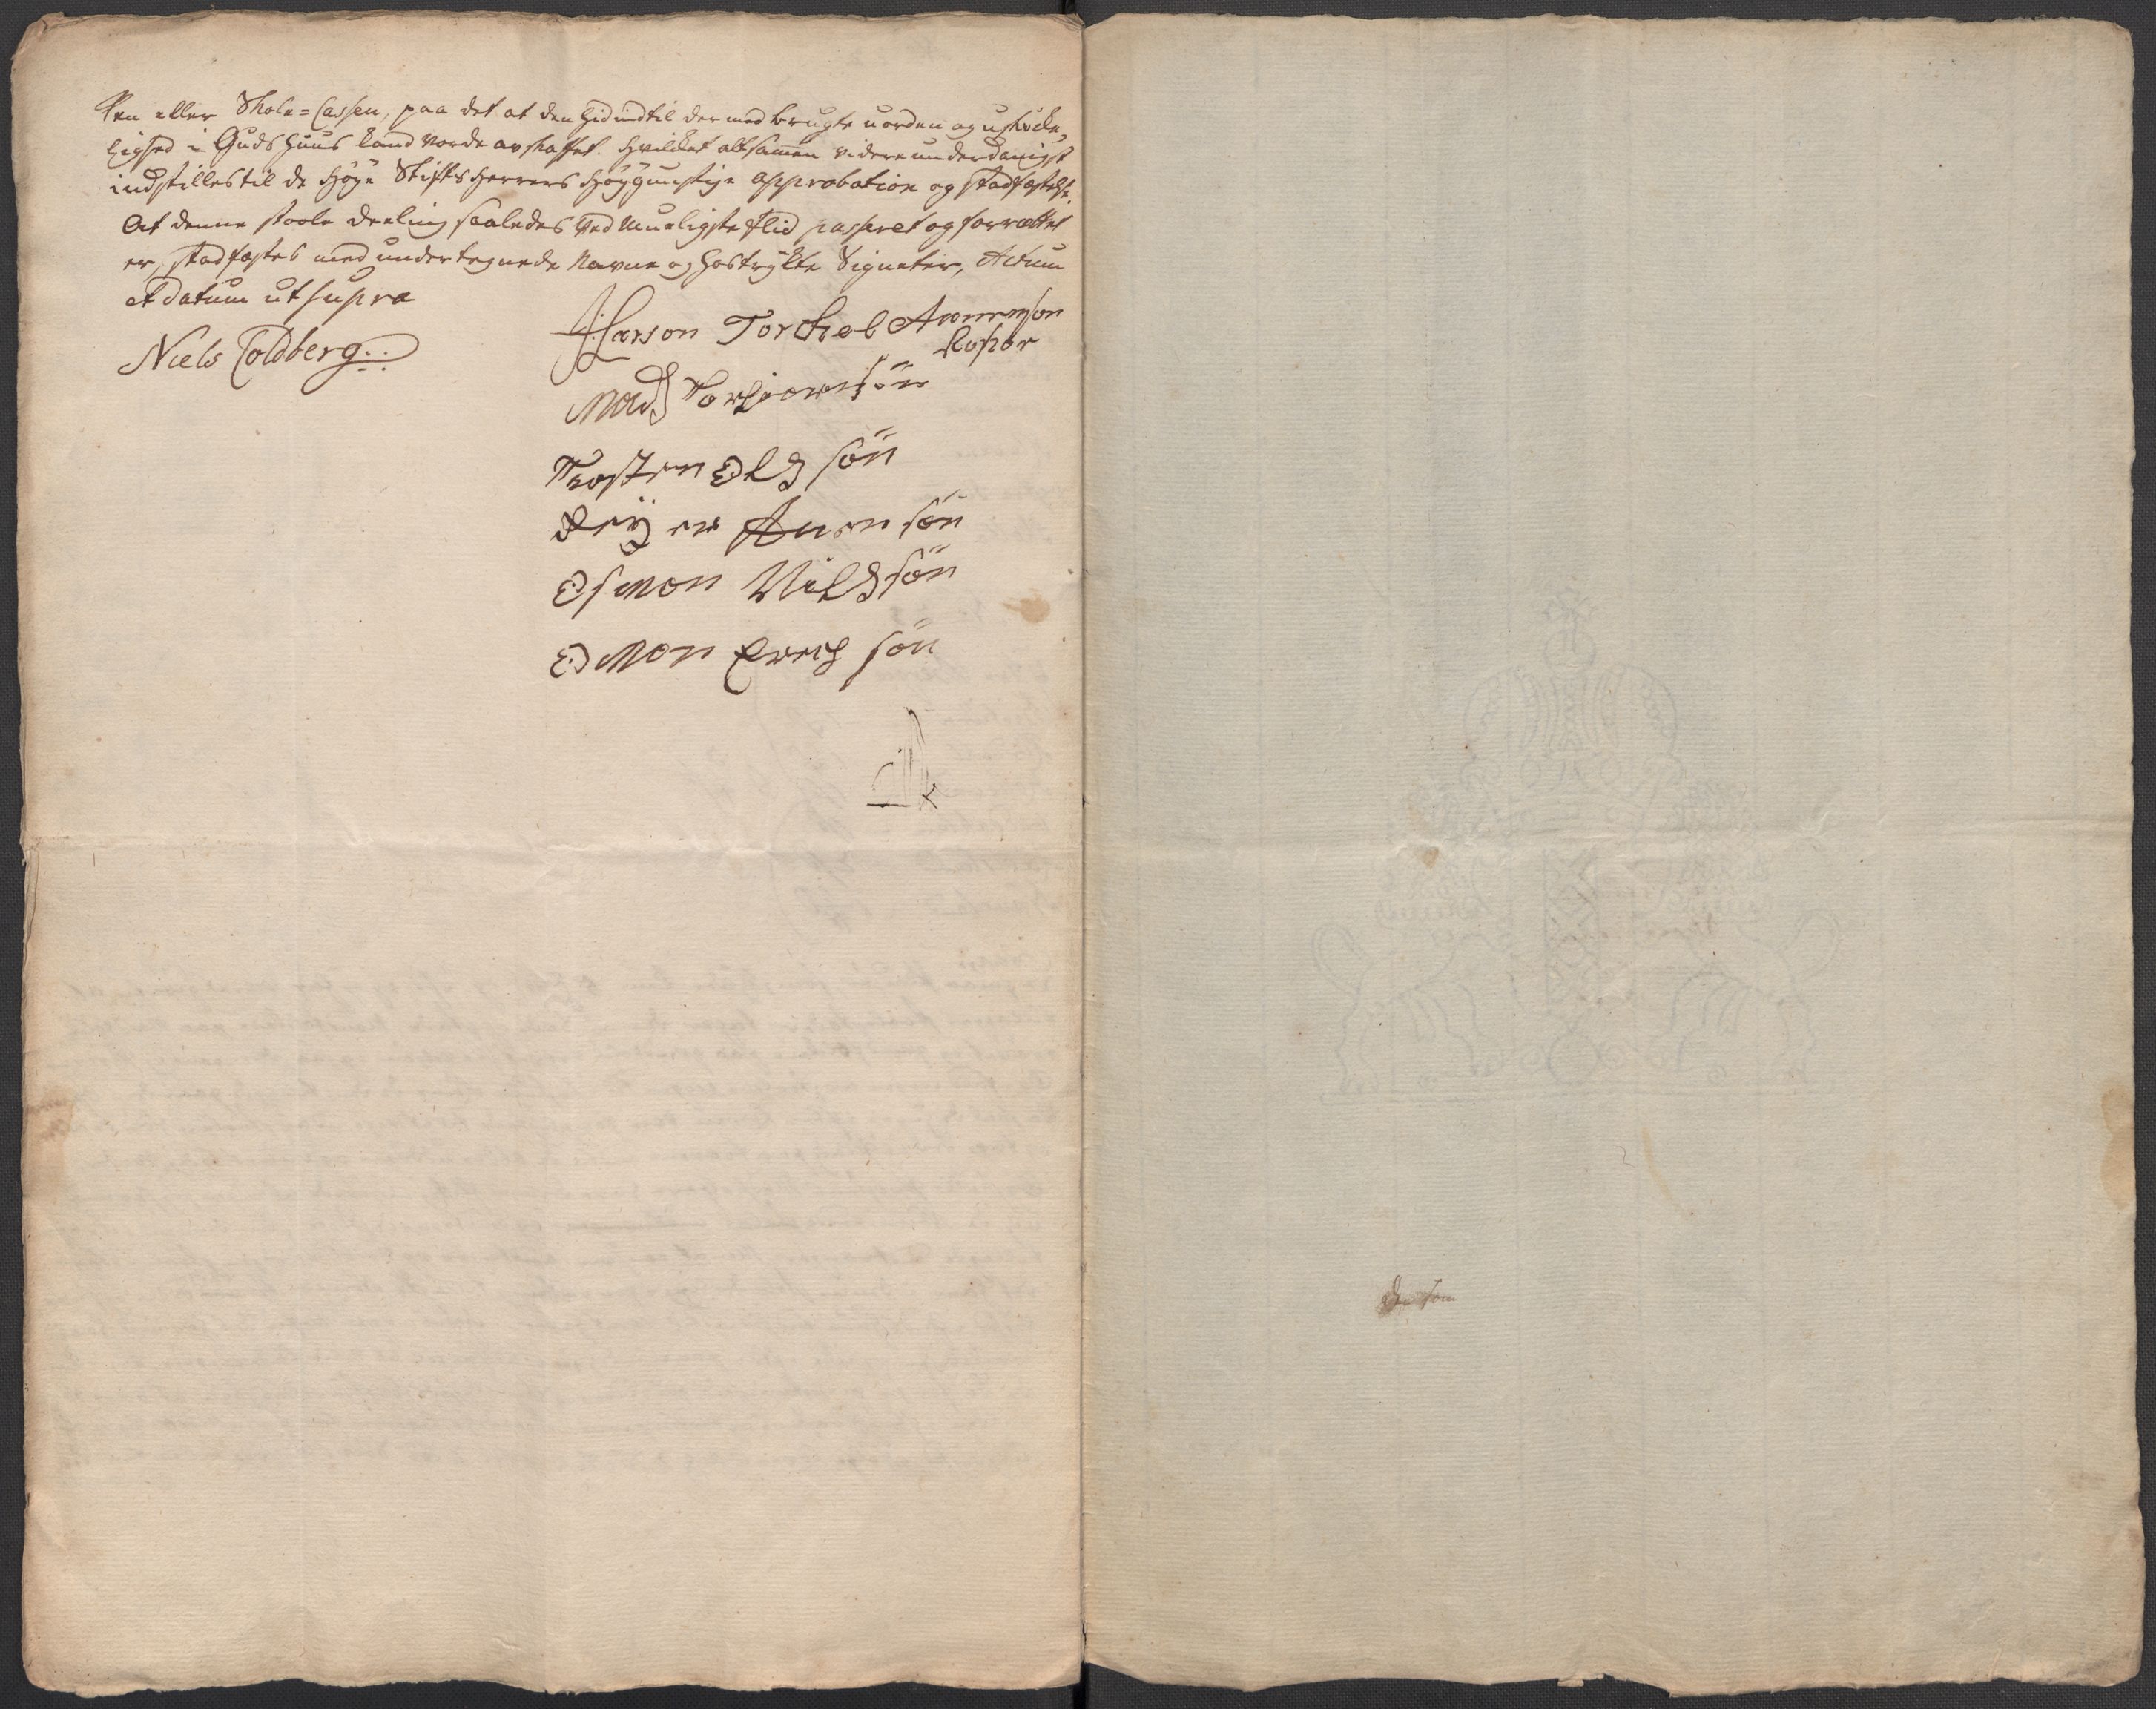 ken eller Skole-Cassen, paa det at den hidindtil der med brugte uorden og uskicke,,
lighed i Guds huus kand vorde avskaffet. Hvilcket altsammen videre underdanigst
indstilles til de Höye Stifts Herrers Höygunstige approbation og stadfæstelse.
At denne stoole deeling saaledes ved Mueligste Flid passeret og forrættet
er, stadfæstes med undertegnede Navne og hostrykte Signeter, Actum
et Datum ut supra
Niels Coldberg
J: Larson Torckel Anensson
Røsser
Mads Torgiersön
Tosten Ols sön
Reijer Anen sön
Osmon Nils sön
Omon Erich sön